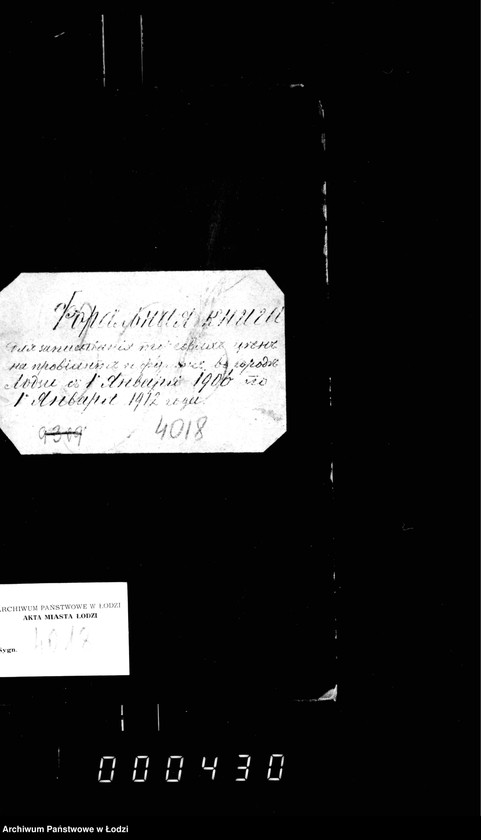 книги
для записыванія торговыхъ цѣнъ
на провіантъ и фуражъ въ городѣ
Лодзи съ 1 Января 1906 по
1 Января 1912 года.
9309 4018
ARCHIWUM PAŃSTWOWE W ŁODZI
AKTA MIASTA ŁODZI
Sygn. 4018
000430
Archiwum Państwowe w Łodzi